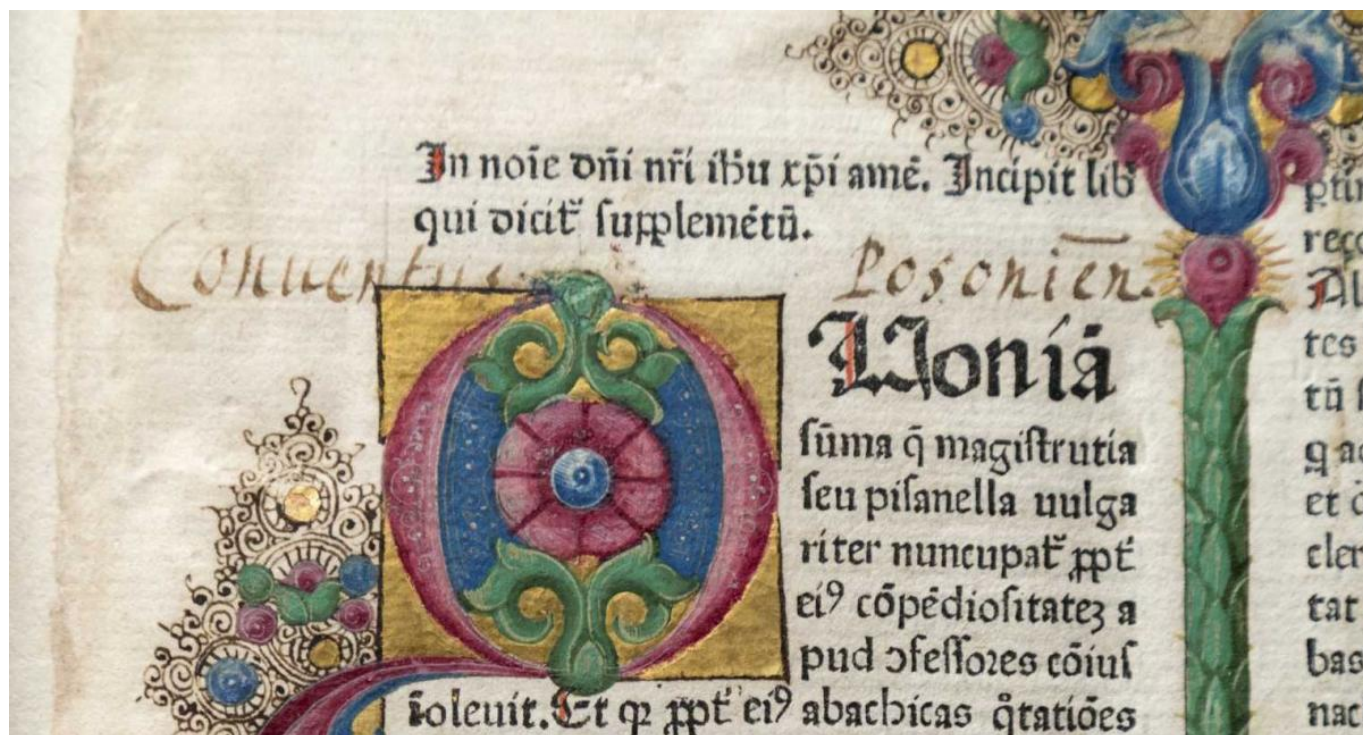 In noīe dn̄i nr̄i ih̄u xp̄i amē. Incipit lib̄
qui dicit᷑ ſupplemētū.
Conuentus Posonien̄.
Quoniā
ſūma q̄ magiſtrutia
ſeu piſanella uulga
riter nuncupat᷑ ꝓpt᷑
eiꝰ cōpēdioſitateꝫ a
pud ↄfeſſoꝛes cōiuſ
īoleuit. Et ꝙ ꝓpt᷑ eiꝰ abachicas q̊tatiōes
reco
Al
tes
tū
q ac
et
cler
tat
bas
nac